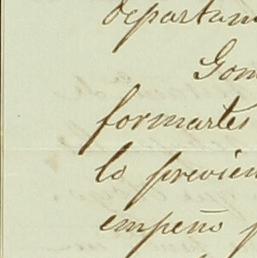 departam
Gom
formartes
lo previen
empeño p